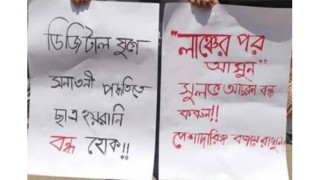 ডিজিটাল যুগে
সনাতনী পদ্ধতিতে
ছাত্র হয়রানি
বন্ধ হোক!!
"লাঞ্চের পর
আসুন"
সুলভ আচরন বন্ধ
করুন!!
পেশাদারিত্ব বজায় রাখুন